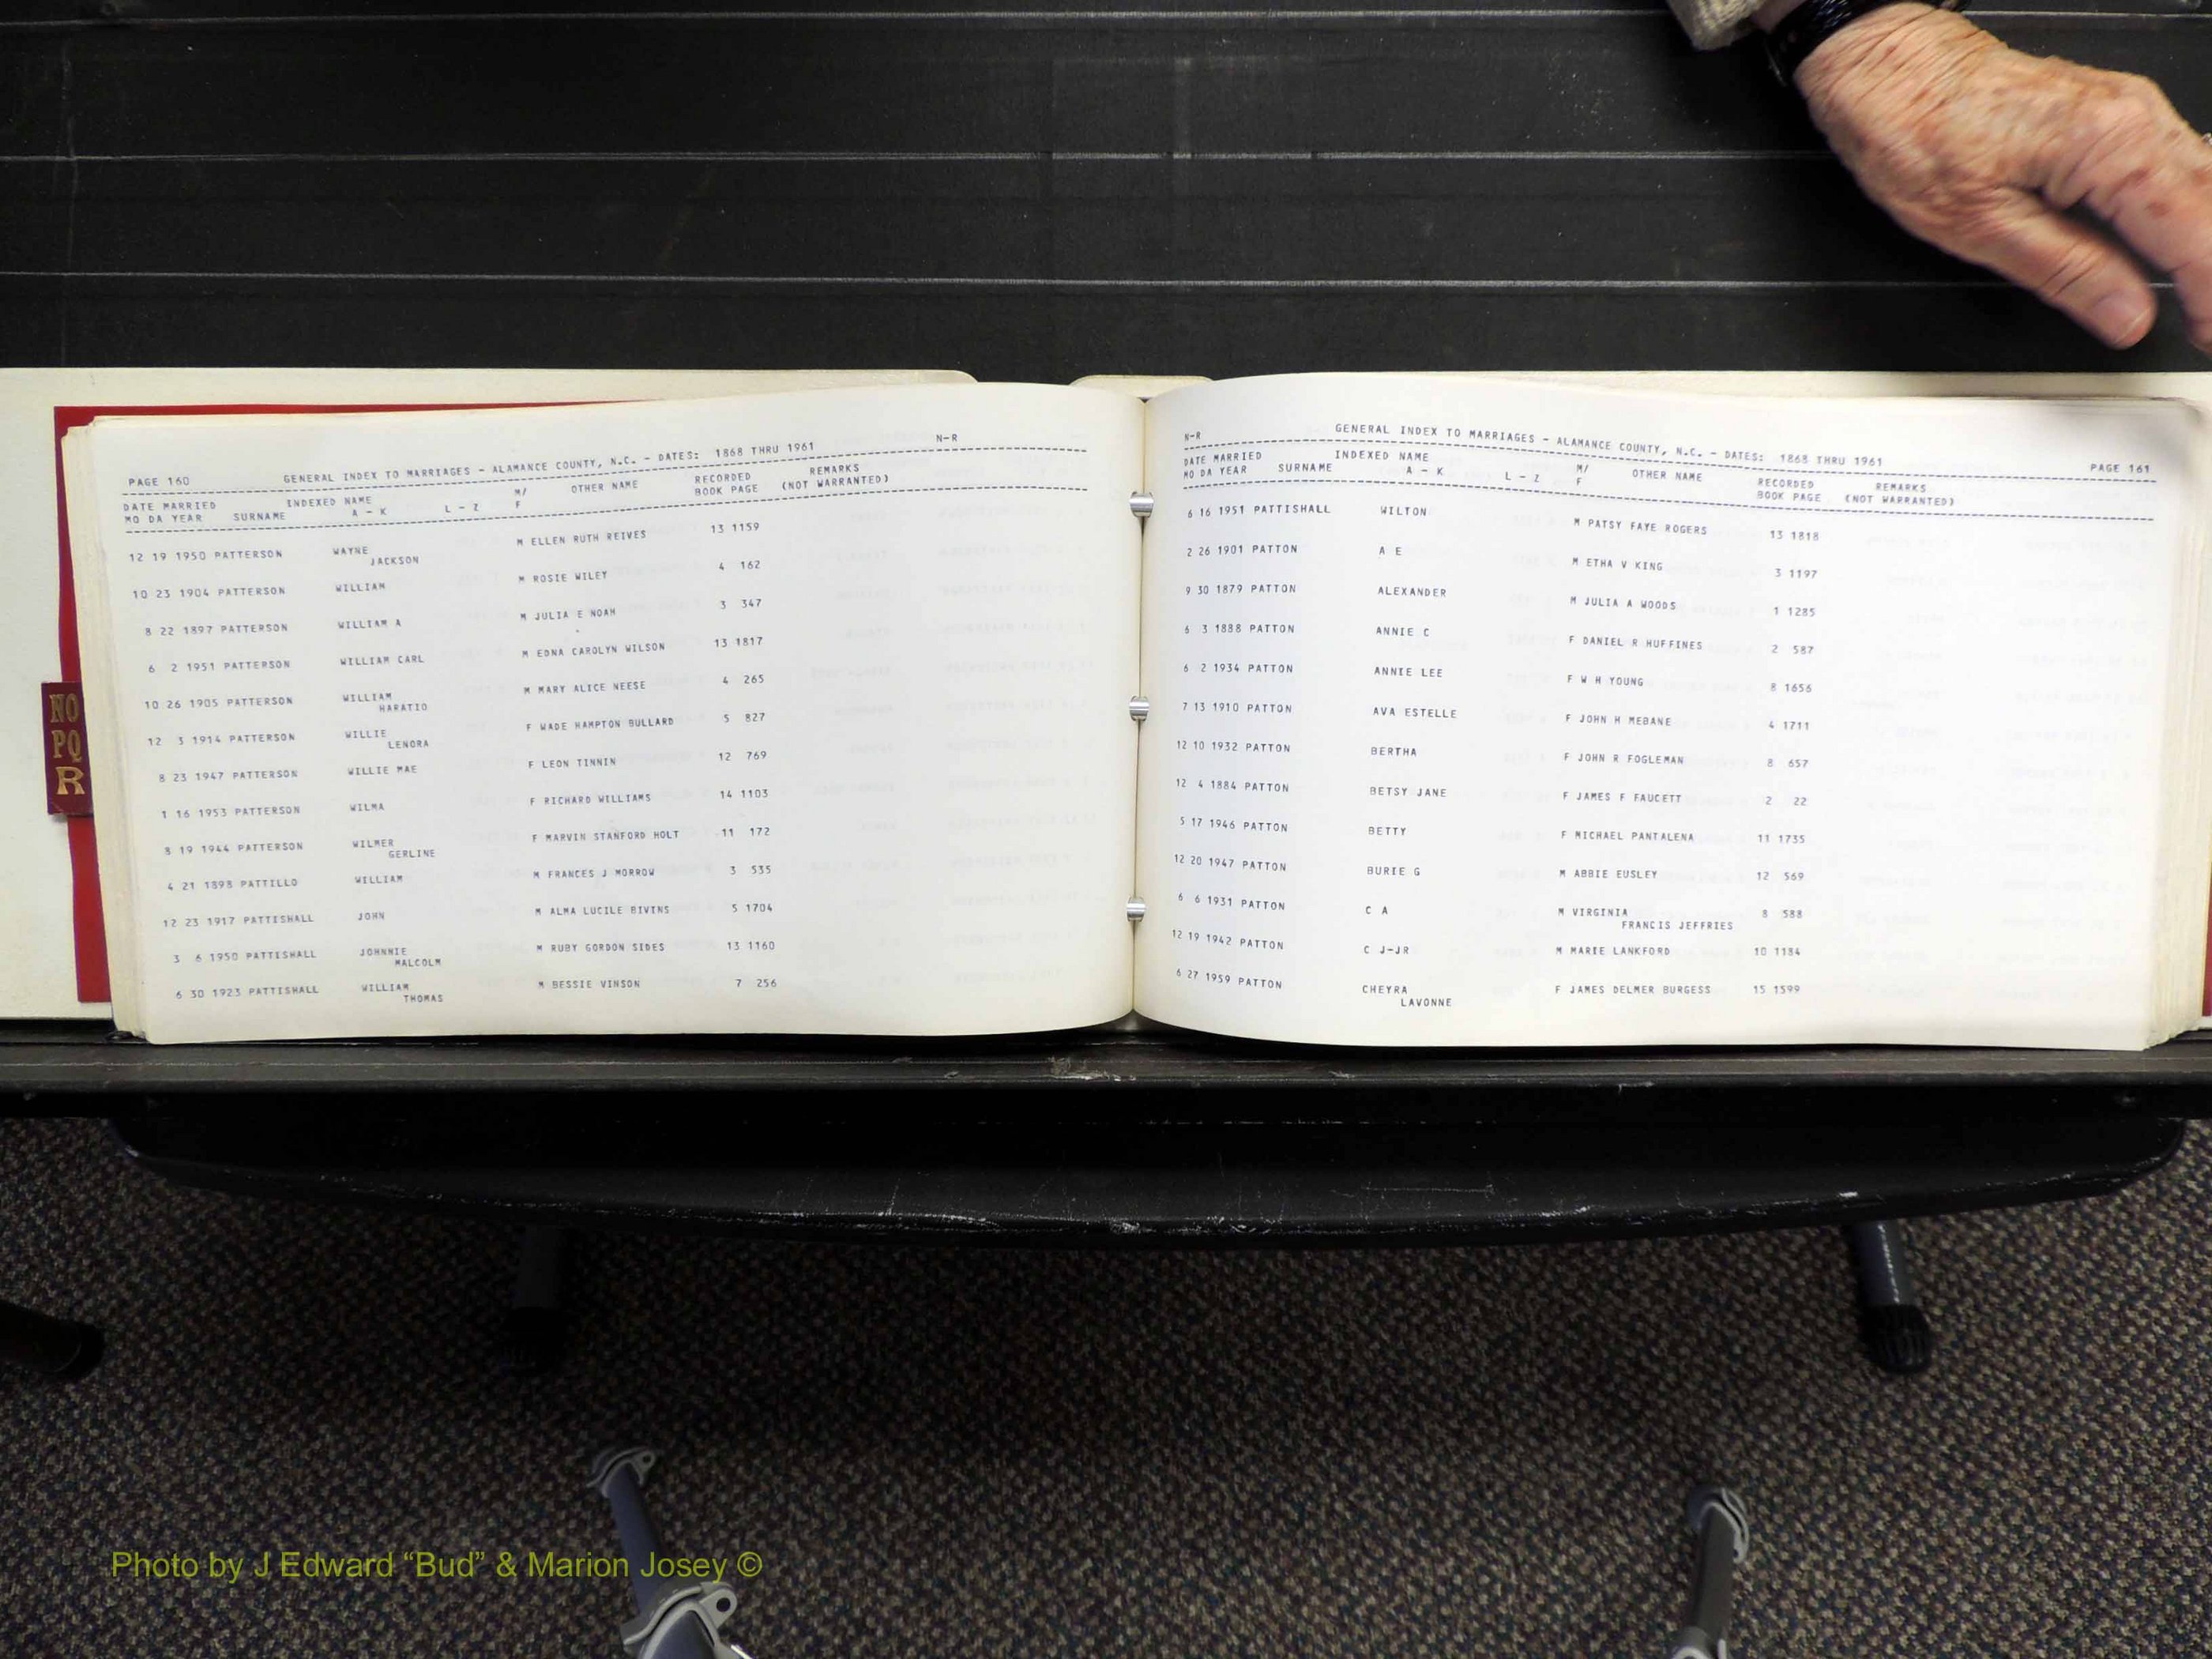 PAGE 160 GENERAL INDEX TO MARRIAGES - ALAMANCE COUNTY, N.C. - DATES: 1868 THRU 1961 N-R
DATE MARRIED INDEXED NAME M/ OTHER NAME RECORDED REMARKS
MO DA YEAR SURNAME A - K L - Z F BOOK PAGE (NOT WARRANTED)
12 19 1950 PATTERSON WAYNE M ELLEN RUTH REIVES 13 1159
JACKSON
10 23 1904 PATTERSON WILLIAM M ROSIE WILEY 4 162
8 22 1897 PATTERSON WILLIAM A M JULIA E NOAH 3 347
6 2 1951 PATTERSON WILLIAM CARL M EDNA CAROLYN WILSON 13 1817
10 26 1905 PATTERSON WILLIAM M MARY ALICE NEESE 4 265
HARATIO
12 3 1914 PATTERSON WILLIE F WADE HAMPTON BULLARD 5 827
LENORA
8 23 1947 PATTERSON WILLIE MAE F LEON TINNIN 12 769
1 16 1953 PATTERSON WILMA F RICHARD WILLIAMS 14 1103
8 19 1944 PATTERSON WILMER F MARVIN STANFORD HOLT 11 172
GERLINE
4 21 1898 PATTILLO WILLIAM M FRANCES J MORROW 3 535
12 23 1917 PATTISHALL JOHN M ALMA LUCILE BIVINS 5 1704
3 6 1950 PATTISHALL JOHNNIE M RUBY GORDON SIDES 13 1160
MALCOLM
6 30 1923 PATTISHALL WILLIAM M BESSIE VINSON 7 256
THOMAS
NO
PQ
R
N-R GENERAL INDEX TO MARRIAGES - ALAMANCE COUNTY, N.C. - DATES: 1868 THRU 1961 PAGE 161
DATE MARRIED INDEXED NAME M/ OTHER NAME RECORDED REMARKS
MO DA YEAR SURNAME A - K L - Z F BOOK PAGE (NOT WARRANTED)
6 16 1951 PATTISHALL WILTON M PATSY FAYE ROGERS 13 1818
2 26 1901 PATTON A E M ETHA V KING 3 1197
9 30 1879 PATTON ALEXANDER M JULIA A WOODS 1 1285
6 3 1888 PATTON ANNIE C F DANIEL R HUFFINES 2 587
6 2 1934 PATTON ANNIE LEE F W H YOUNG 8 1656
7 13 1910 PATTON AVA ESTELLE F JOHN H MEBANE 4 1711
12 10 1932 PATTON BERTHA F JOHN R FOGLEMAN 8 657
12 4 1884 PATTON BETSY JANE F JAMES F FAUCETT 2 22
5 17 1946 PATTON BETTY F MICHAEL PANTALENA 11 1735
12 20 1947 PATTON BURIE G M ABBIE EUSLEY 12 569
6 6 1931 PATTON C A M VIRGINIA 8 588
FRANCIS JEFFRIES
12 19 1942 PATTON C J-JR M MARIE LANKFORD 10 1184
6 27 1959 PATTON CHEYRA F JAMES DELMER BURGESS 15 1599
LAVONNE
Photo by J Edward “Bud” & Marion Josey ©